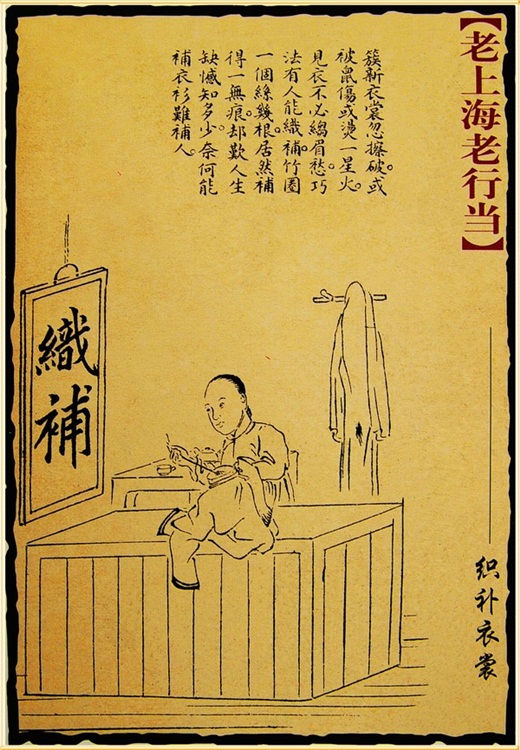 【老上海老行当】
簇新衣裳忽擦破。或
被鼠傷或燙一星火。
見衣不必縐眉愁巧
法有人能織補。竹圈
一個絲幾根。居然補
得一無痕。却歎人生
缺憾知多少。奈何能
補衣衫難補人。
織補
织补衣裳